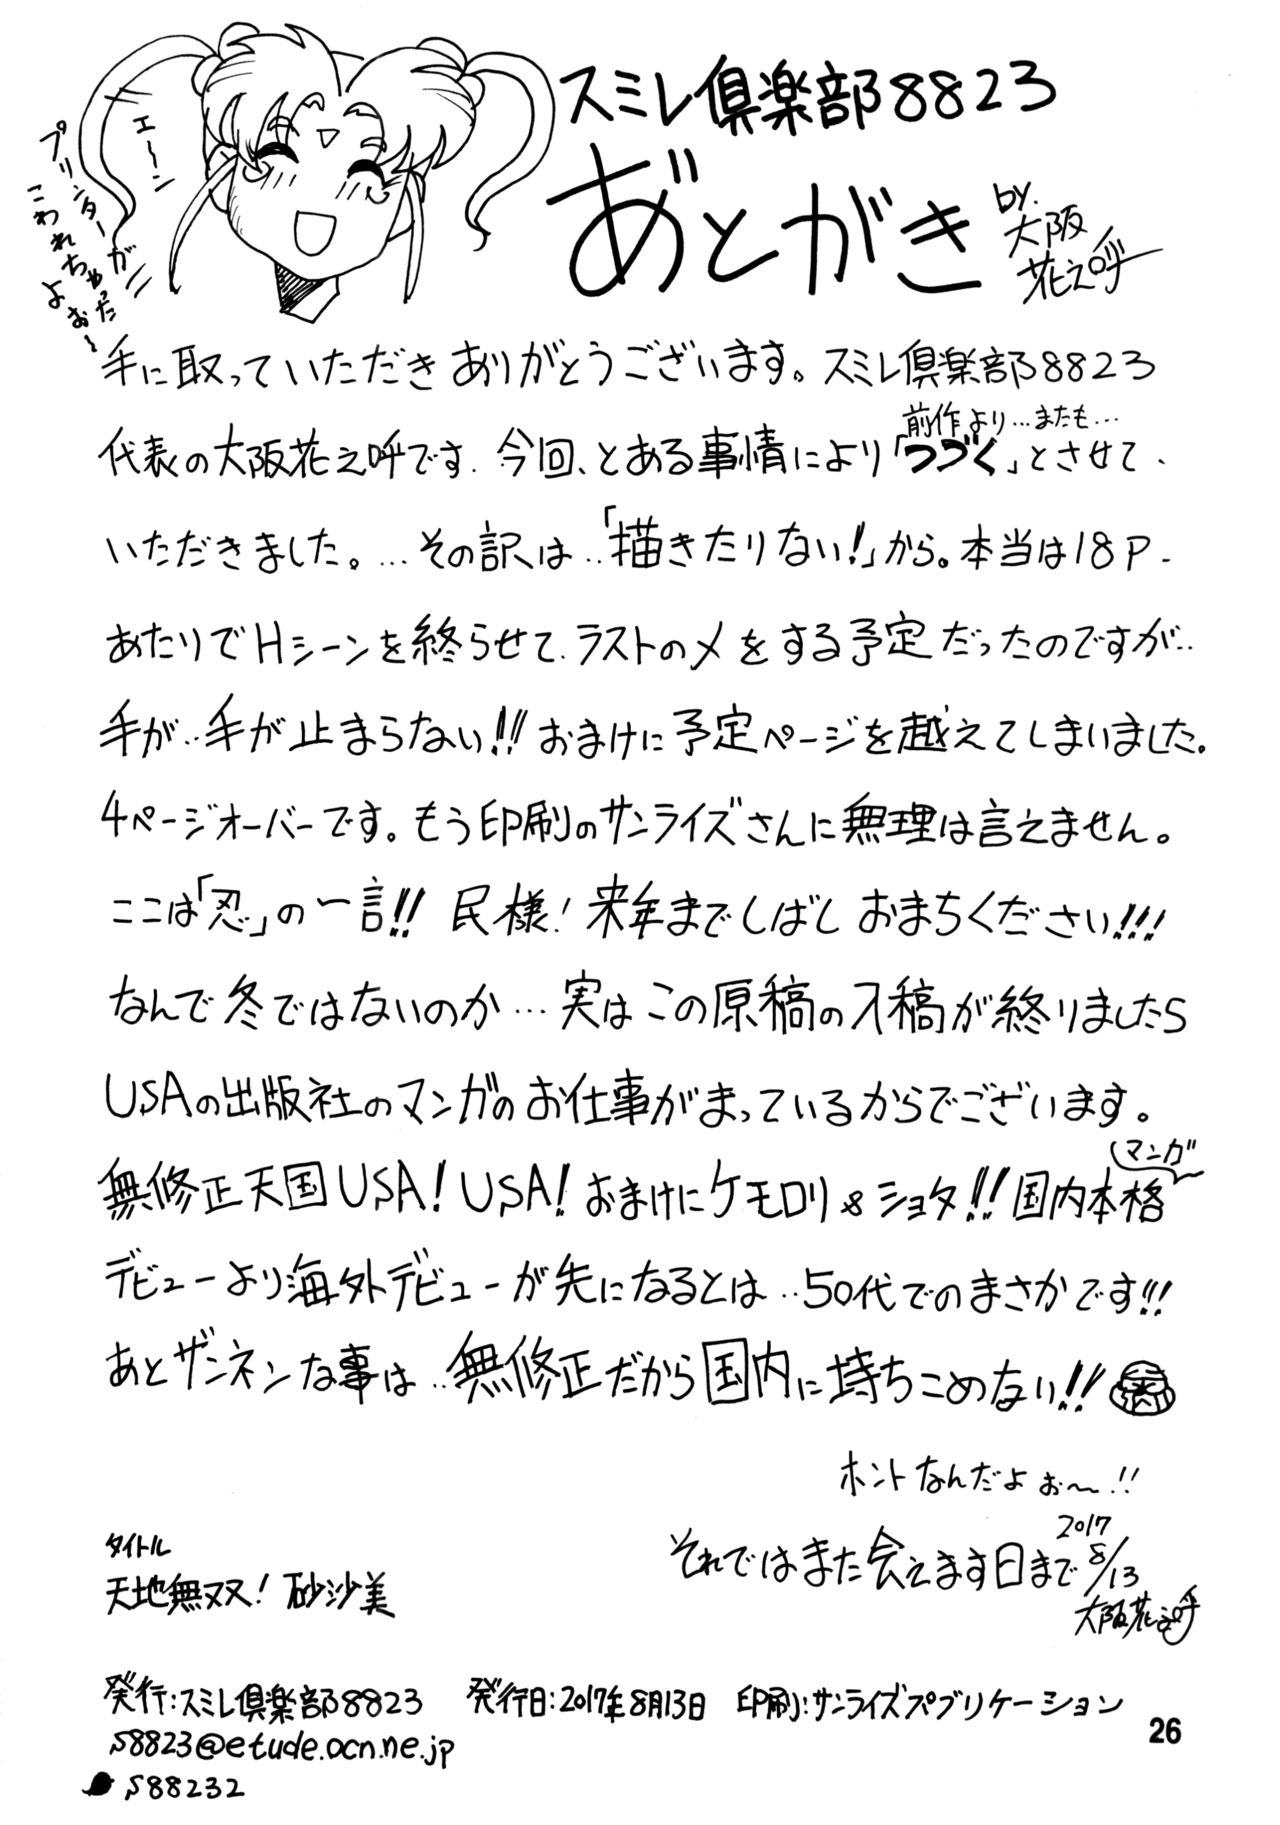 スミレ倶楽部8823
あとがき
by.
大阪
花之呼
エ〜ン
プリンターが
こわれちゃった
よぉ〜
手に取っていただきありがとうございます。スミレ倶楽部8823
前作より…またも…
代表の大阪花之呼です.今回、とある事情により「つづく」とさせて、
いただきました。…その訳は‥「描きたりない!」から。本当は18P-
あたりでHシーンを終らせて.ラストの〆をする予定だったのですが‥
手が‥手が止まらない!!おまけに予定ページを越えてしまいました.
4ページオーバーです。もう印刷のサンライズさんに無理は言えません。
ここは「忍」の一言!! 民様!来年までしばしおまちください!!!
なんで冬ではないのか…実はこの原稿の入稿が終りましたら
USAの出版社のマンガのお仕事がまっているからでございます。
マンガ
無修正天国USA!USA!おまけにケモロリ&ショタ!!国内本格
デビューより海外デビューが先になるとは‥50代でのまさかです!!!
あとザンネンな事は‥無修正だから国内に持ちこめない!!
ホントなんだよぉ〜!!
それではまた会えます日まで
2017
8/13
大阪花之呼
タイトル
天地無双!砂沙美
発行:スミレ倶楽部8823 発行日:2017年8月13日 印刷:サンライズパブリケーション
S8823@etude.ocn.ne.jp
S88232
26